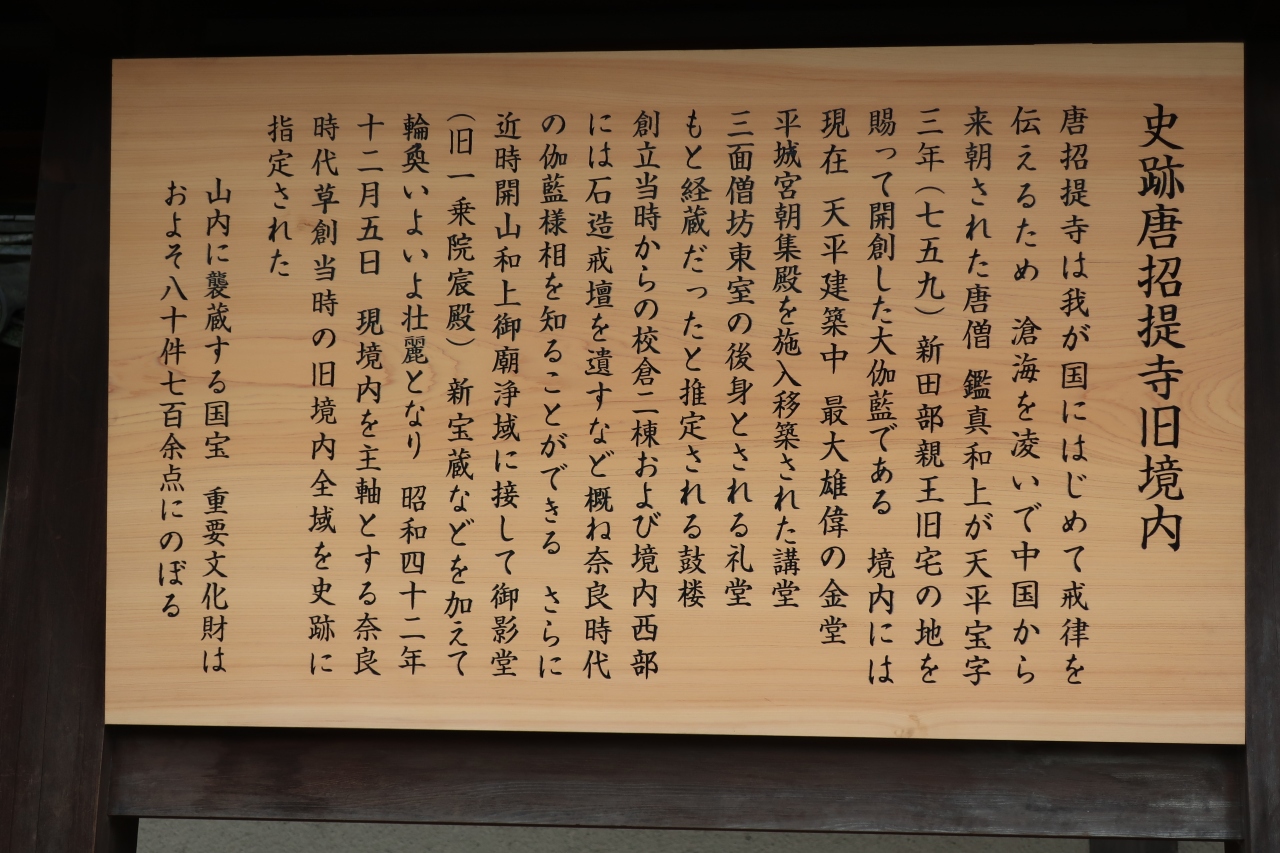 史跡唐招提寺旧境内
唐招提寺は我が国にはじめて戒律を
伝えるため 滄海を凌いで中国から
来朝された唐僧 鑑真和上が天平宝字
三年（七五九）新田部親王旧宅の地を
賜って開創した大伽藍である 境内には
現在 天平建築中 最大雄偉の金堂
平城宮朝集殿を施入移築された講堂
三面僧坊東室の後身とされる礼堂
もと経蔵だったと推定される鼓楼
創立当時からの校倉二棟および境内西部
には石造戒壇を遺すなど概ね奈良時代
の伽藍様相を知ることができる さらに
近時開山和上御廟浄域に接して御影堂
（旧一乗院宸殿）新宝蔵などを加えて
輪奐いよいよ壮麗となり 昭和四十二年
十二月五日 現境内を主軸とする奈良
時代草創当時の旧境内全域を史跡に
指定された
山内に襲蔵する国宝 重要文化財は
およそ八十件七百余点にのぼる